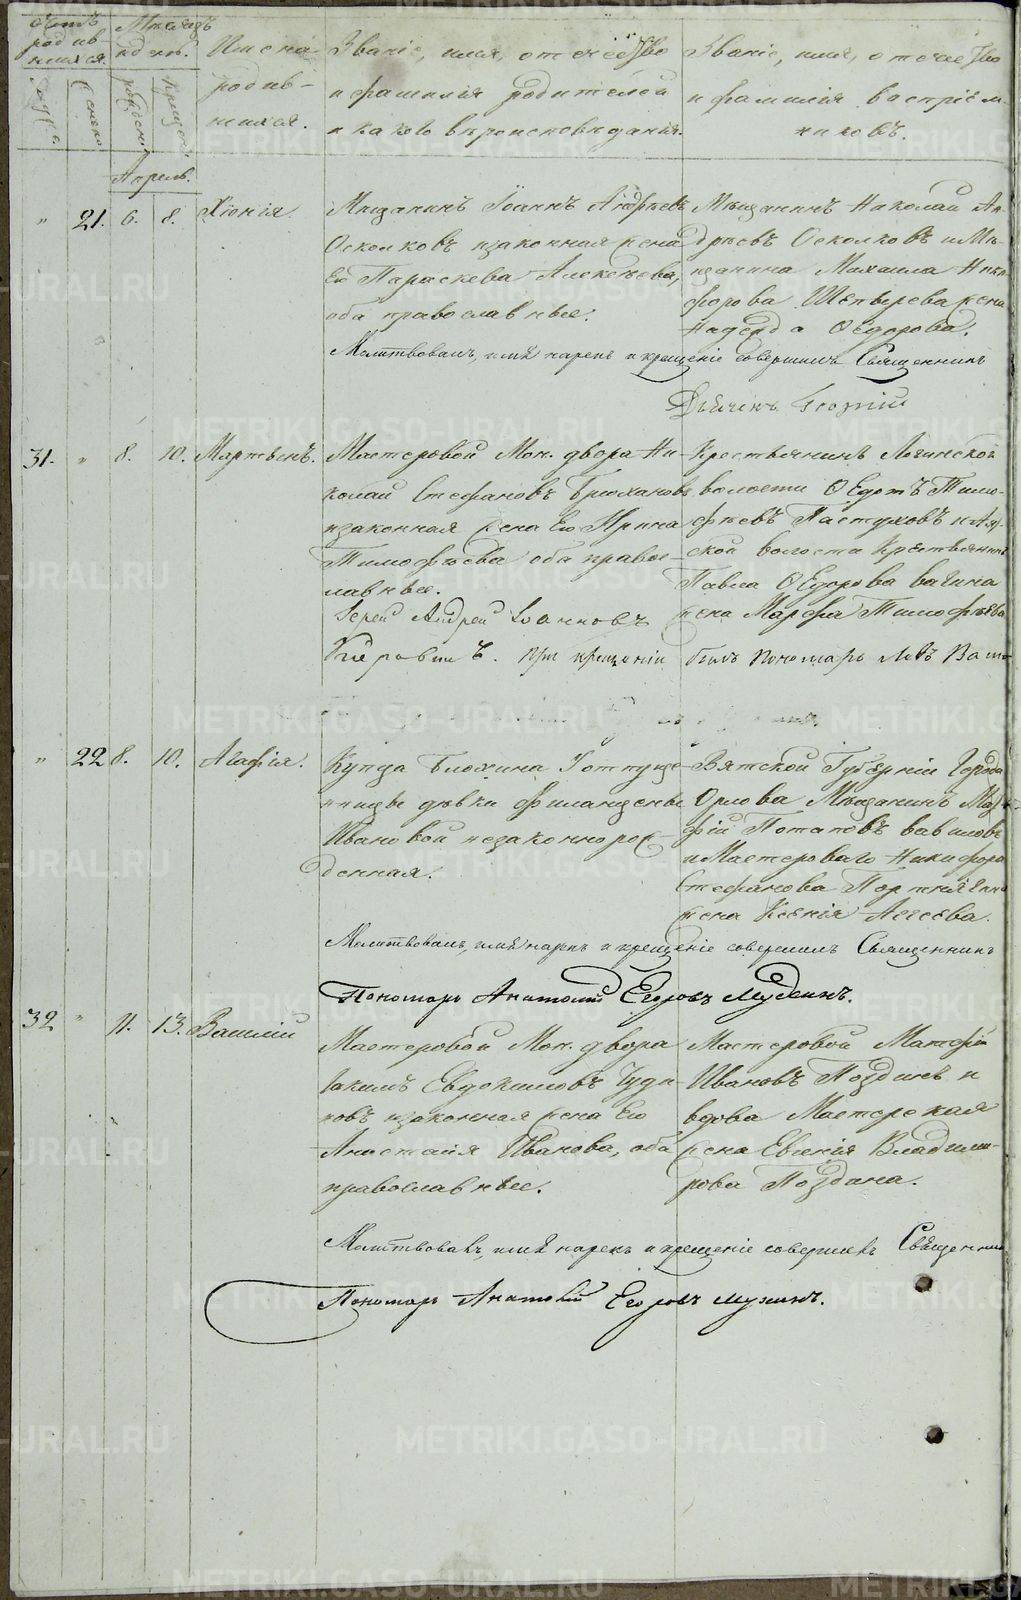 Счетъ родив шихся.
Мѣсяцъ и день.
Имена родив- шихся.
Званіе, имя, отчество
и фамилія родителей
и какого вѣроисповѣданія.
Званіе, имя, отчество
и фамилія воспріем-
никовъ.
Апрѣль.
" 21. 6. 8. Хіонія.
Мѣщанинъ Іоаннъ Андреевъ
Осколковъ и законная жена
Его Параскева Алексѣева,
оба православные.
Мѣщанинъ Николай Ан-
дреевъ Осколковъ и Мѣ-
щанина Михаила Ники-
форова жена
Надежда Ѳедорова.
Молитвовалъ, имя нарекъ и крещеніе совершилъ Священникъ
Георгій
31. " 8. 10. Мартынъ.
Мастеровой Мон. двора Ни-
колай Стефановъ Брюхановъ
и законная жена Его Ирина
Тимофеева оба право-
славные.
Крестьянинъ Логинской
волости Ѳедотъ Тимо-
феевъ Пастуховъ и
ской волости Крестьянина
Павла Ѳедорова Вагина
жена Марфа Тимофѣева
Іерей Андрей Іоанновъ
при крещеніи былъ Пономарь Левъ
" 22 8. 10. Агафія.
Купца Блохина
дѣвки
Ивановой незаконнорож-
денная.
Вятской Губерніи Города
Орлова Мѣщанинъ
Потаповъ Вавиловъ
и Мастероваго Никифора
Стефанова
жена Ксенія Агеева.
Молитвовалъ, имя нарекъ и крещеніе совершилъ Священникъ
Пономарь Анатолій Егоровъ Мухинъ.
32 " 11. 13. Василій
Мастеровой Мон. двора
Іакимъ Евдокимовъ Чуди-
новъ и законная жена Его
Анастасія Иванова, оба
православные.
Мастеровой Матфей
Ивановъ Поздинъ и
вдова Мастерская
жена Евгенія Владими-
рова Поздина.
Молитвовалъ, имя нарекъ и крещеніе совершилъ Священникъ
Пономарь Анатолій Егоровъ Мухинъ.
METRIKI.GASO-URAL.RU